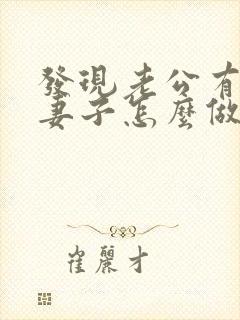 發現老公有
妻子怎麼做
崔麗才